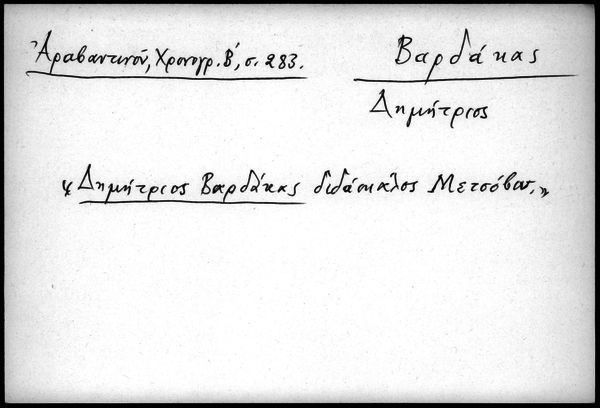 Ἀραβαντινοῦ, Χρονογρ. Β΄, σ. 283.
Βαρδάκας
Δημήτριος
« Δημήτριος Βαρδάκας διδάσκαλος Μετσόβου. »